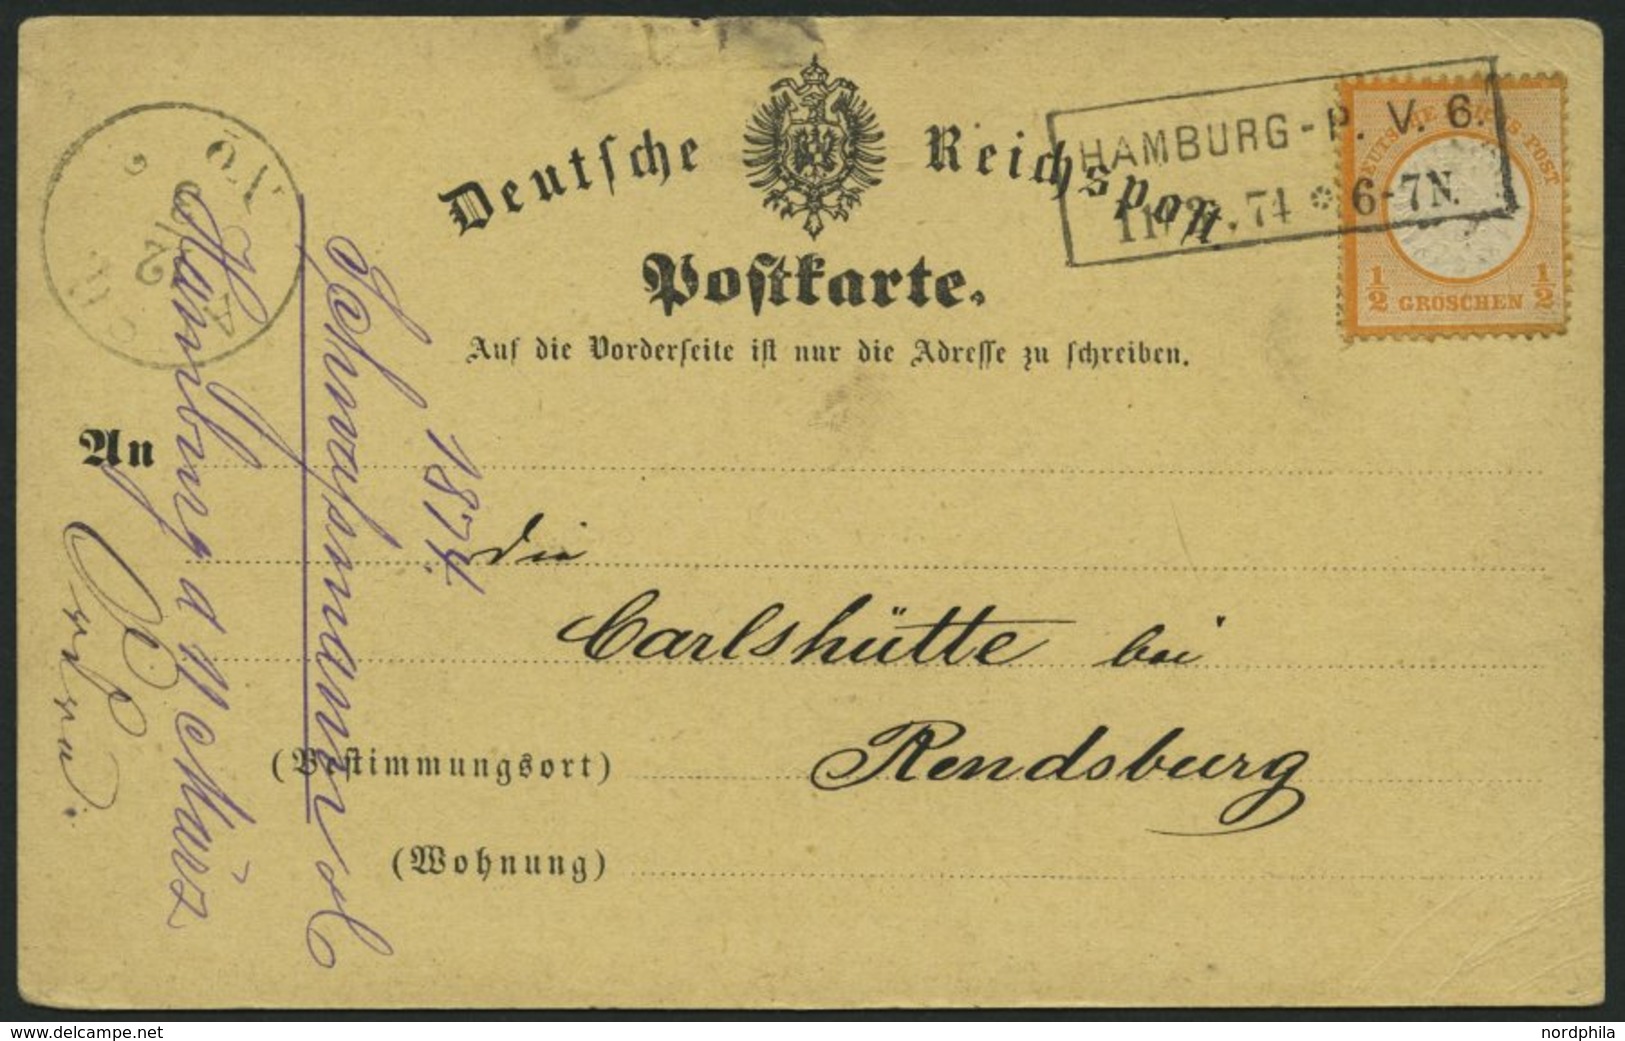 Deutsche Reichspost
Postkarte.
Auf die Vorderseite ist nur die Adresse zu schreiben.
HAMBURG - P. V. 6.
11 .74 * 6-7N.
DEUTSCHE REICHS-POST
1/2 GROSCHEN 1/2
12/2
An
die
Carlshütte bei
(Bestimmungsort) Rendsburg
(Wohnung)
1874
Hamburg a 11 März
www.delcampe.net
nordphila